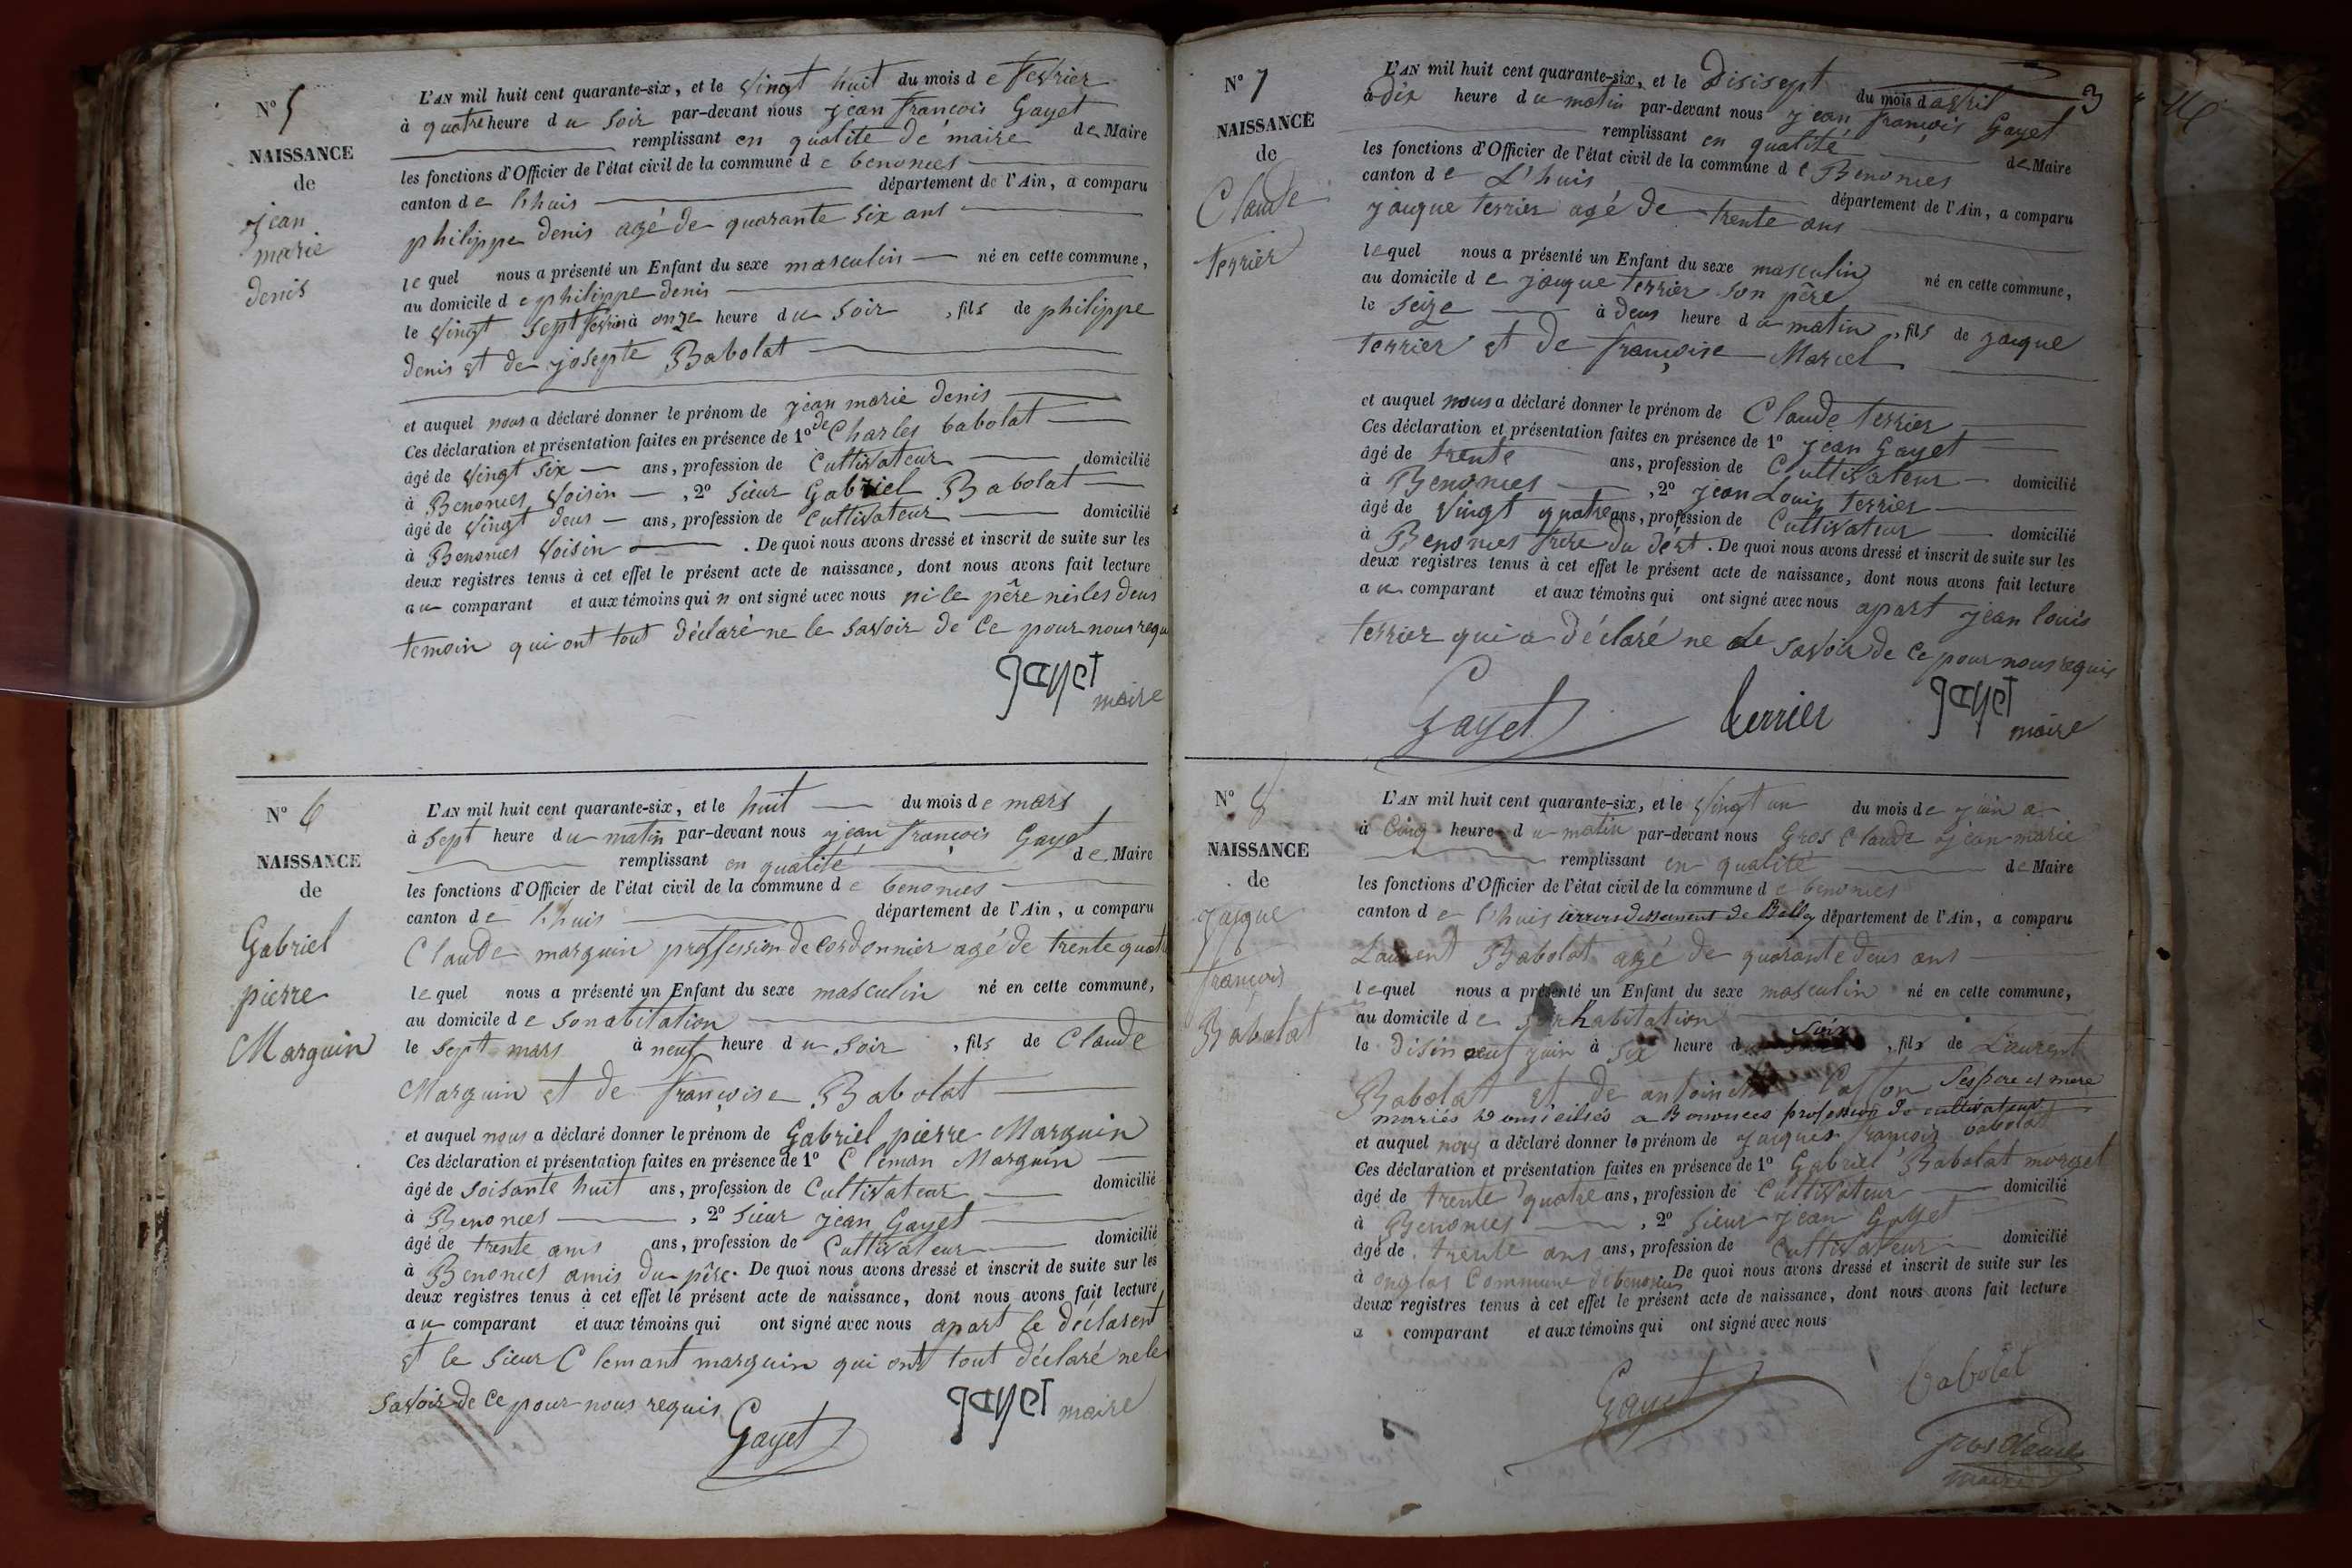 N° 5
NAISSANCE
de
jean
marie
denis
L'AN mil huit cent quarante-six, et le vingt huit du mois de fevrier
à quatre heure du soir par-devant nous jean françois Gayet
remplissant en qualité de maire de Maire
les fonctions d'Officier de l'état civil de la commune de benonces
canton de lhuis département de l'Ain, a comparu
philippe denis agé de quarante six ans
lequel nous a présenté un Enfant du sexe masculin né en cette commune,
au domicile de philippe denis
le vingt sept fevrier à onze heure du soir, fils de philippe
denis et de josepte Babolat
et auquel nous a déclaré donner le prénom de jean marie denis
Ces déclaration et présentation faites en présence de 1° de Charles babolat
âgé de vingt six ans, profession de Cultivateur domicilié
à Benonces voisin, 2° sieur Gabriel Babolat
âgé de vingt deus ans, profession de Cultivateur domicilié
à Benonces voisin. De quoi nous avons dressé et inscrit de suite sur les
deux registres tenus à cet effet le présent acte de naissance, dont nous avons fait lecture
au comparant et aux témoins qui n ont signé avec nous ni le père ni les deus
temoin qui ont tout déclaré ne le savoir de ce pour nous requ
gayet
maire
N° 6
NAISSANCE
de
Gabriel
pierre
Marguin
L'AN mil huit cent quarante-six, et le huit du mois de mars
à sept heure du matin par-devant nous jean françois Gayet
remplissant en qualité de Maire
les fonctions d'Officier de l'état civil de la commune de benonces
canton de lhuis département de l'Ain, a comparu
Claude marguin proffession de Cordonnier agé de trente quatre
lequel nous a présenté un Enfant du sexe masculin né en cette commune,
au domicile de son abitation
le sept mars à neuf heure du soir, fils de Claude
Marguin et de françoise Babolat
et auquel nous a déclaré donner le prénom de Gabriel pierre Marguin
Ces déclaration et présentation faites en présence de 1° Cleman Marguin
âgé de soisante huit ans, profession de Cultivateur domicilié
à Benonces, 2° sieur jean Gayet
âgé de trente ans ans, profession de Cultivateur domicilié
à Benonces amis du père. De quoi nous avons dressé et inscrit de suite sur les
deux registres tenus à cet effet le présent acte de naissance, dont nous avons fait lecture
au comparant et aux témoins qui ont signé avec nous apart le déclarent
et le sieur Clemant marguin qui ont tout déclaré ne le
savoir de ce pour nous requis
Gayet
gayet maire
3
N° 7
NAISSANCE
de
Claude
terrier
L'AN mil huit cent quarante-six, et le disisept du mois d avril
à dix heure du matin par-devant nous jean françois Gayet
remplissant en qualité de Maire
les fonctions d'Officier de l'état civil de la commune de Benonces
canton de L'huis département de l'Ain, a comparu
jaique terrier agé de trente ans
lequel nous a présenté un Enfant du sexe masculin né en cette commune,
au domicile de jaique terrier son père
le seize à deus heure du matin, fils de jaique
terrier et de françoise Marcel
et auquel nous a déclaré donner le prénom de Claude terrier
Ces déclaration et présentation faites en présence de 1° jean Gayet
âgé de trente ans, profession de Cultivateur domicilié
à Benonces, 2° jean Louis terrier
âgé de vingt quatre ans, profession de Cultivateur domicilié
à Benonces frere du dert. De quoi nous avons dressé et inscrit de suite sur les
deux registres tenus à cet effet le présent acte de naissance, dont nous avons fait lecture
au comparant et aux témoins qui ont signé avec nous apart jean louis
terrier qui a déclaré ne le savoir de ce pour nous requis
Gayet terrier gayet
maire
N° 8
NAISSANCE
de
jaique
françois
Babolat
L'AN mil huit cent quarante-six, et le vingt un du mois de juin a
à Cinq heure du matin par-devant nous Gros Claude jean marie
remplissant en qualité de Maire
les fonctions d'Officier de l'état civil de la commune de benonces
canton de lhuis arrondissement de Belley département de l'Ain, a comparu
Laurent Babolat agé de quarante deus ans
lequel nous a présenté un Enfant du sexe masculin né en cette commune,
au domicile de son habitation
le disineuf juin à six heure du soir, fils de Laurent
Babolat et de antoinette ses pere et mere
mariés domiciliés a Benonces profession de cultivateur
et auquel nous a déclaré donner le prénom de jaiques françois babolat
Ces déclaration et présentation faites en présence de 1° Gabriel Babolat
âgé de trente quatre ans, profession de Cultivateur domicilié
à Benonces, 2° sieur jean Gayet
âgé de trente ans ans, profession de Cultivateur domicilié
à onglas Commune de benonces De quoi nous avons dressé et inscrit de suite sur les
deux registres tenus à cet effet le présent acte de naissance, dont nous avons fait lecture
a comparant et aux témoins qui ont signé avec nous
Gayet babolat
Gros Claude
maire